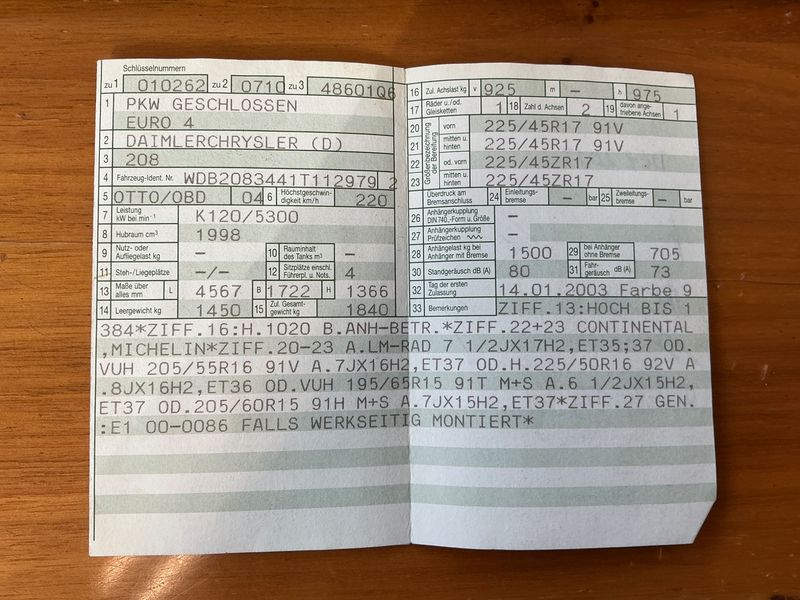 Schlüsselnummern
zu 1 010262 zu 2 0710 zu 3 4860106
1 PKW GESCHLOSSEN
EURO 4
2 DAIMLERCHRYSLER (D)
3 208
4 Fahrzeug-Ident. Nr. WDB2083441T112979 2
5 OTTO/OBD 04 6 Höchstgeschwin-digkeit km/h 220
7 Leistung kW bei min⁻¹ K120/5300
8 Hubraum cm³ 1998
9 Nutz- oder Aufliegelast kg – 10 Rauminhalt des Tanks m³ –
11 Steh-/Liegeplätze –/– 12 Sitzplätze einschl. Führerpl. u. Nots. 4
13 Maße über alles mm L 4567 B 1722 H 1366
14 Leergewicht kg 1450 15 Zul. Gesamt-gewicht kg 1840
16 Zul. Achslast kg v 925 m – h 975
17 Räder u./od. Gleisketten 1 18 Zahl d. Achsen 2 19 davon ange-triebene Achsen 1
Größenbezeichnung der Bereifung
20 vorn 225/45R17 91V
21 mitten u. hinten 225/45R17 91V
22 od. vorn 225/45ZR17
23 mitten u. hinten 225/45ZR17
Überdruck am Bremsanschluss 24 Einleitungs-bremse – bar 25 Zweileitungs-bremse – bar
26 Anhängerkupplung DIN 740.,-Form u. Größe –
27 Anhängerkupplung Prüfzeichen –
28 Anhängelast kg bei Anhänger mit Bremse 1500 29 bei Anhänger ohne Bremse 705
30 Standgeräusch dB (A) 80 31 Fahr-geräusch dB (A) 73
32 Tag der ersten Zulassung 14.01.2003 Farbe 9
33 Bemerkungen ZIFF.13:HOCH BIS 1
384*ZIFF.16:H.1020 B.ANH-BETR.*ZIFF.22+23 CONTINENTAL
,MICHELIN*ZIFF.20-23 A.LM-RAD 7 1/2JX17H2,ET35;37 OD.
VUH 205/55R16 91V A.7JX16H2,ET37 OD.H.225/50R16 92V A
.8JX16H2,ET36 OD.VUH 195/65R15 91T M+S A.6 1/2JX15H2,
ET37 OD.205/60R15 91H M+S A.7JX15H2,ET37*ZIFF.27 GEN.
:E1 00-0086 FALLS WERKSEITIG MONTIERT*